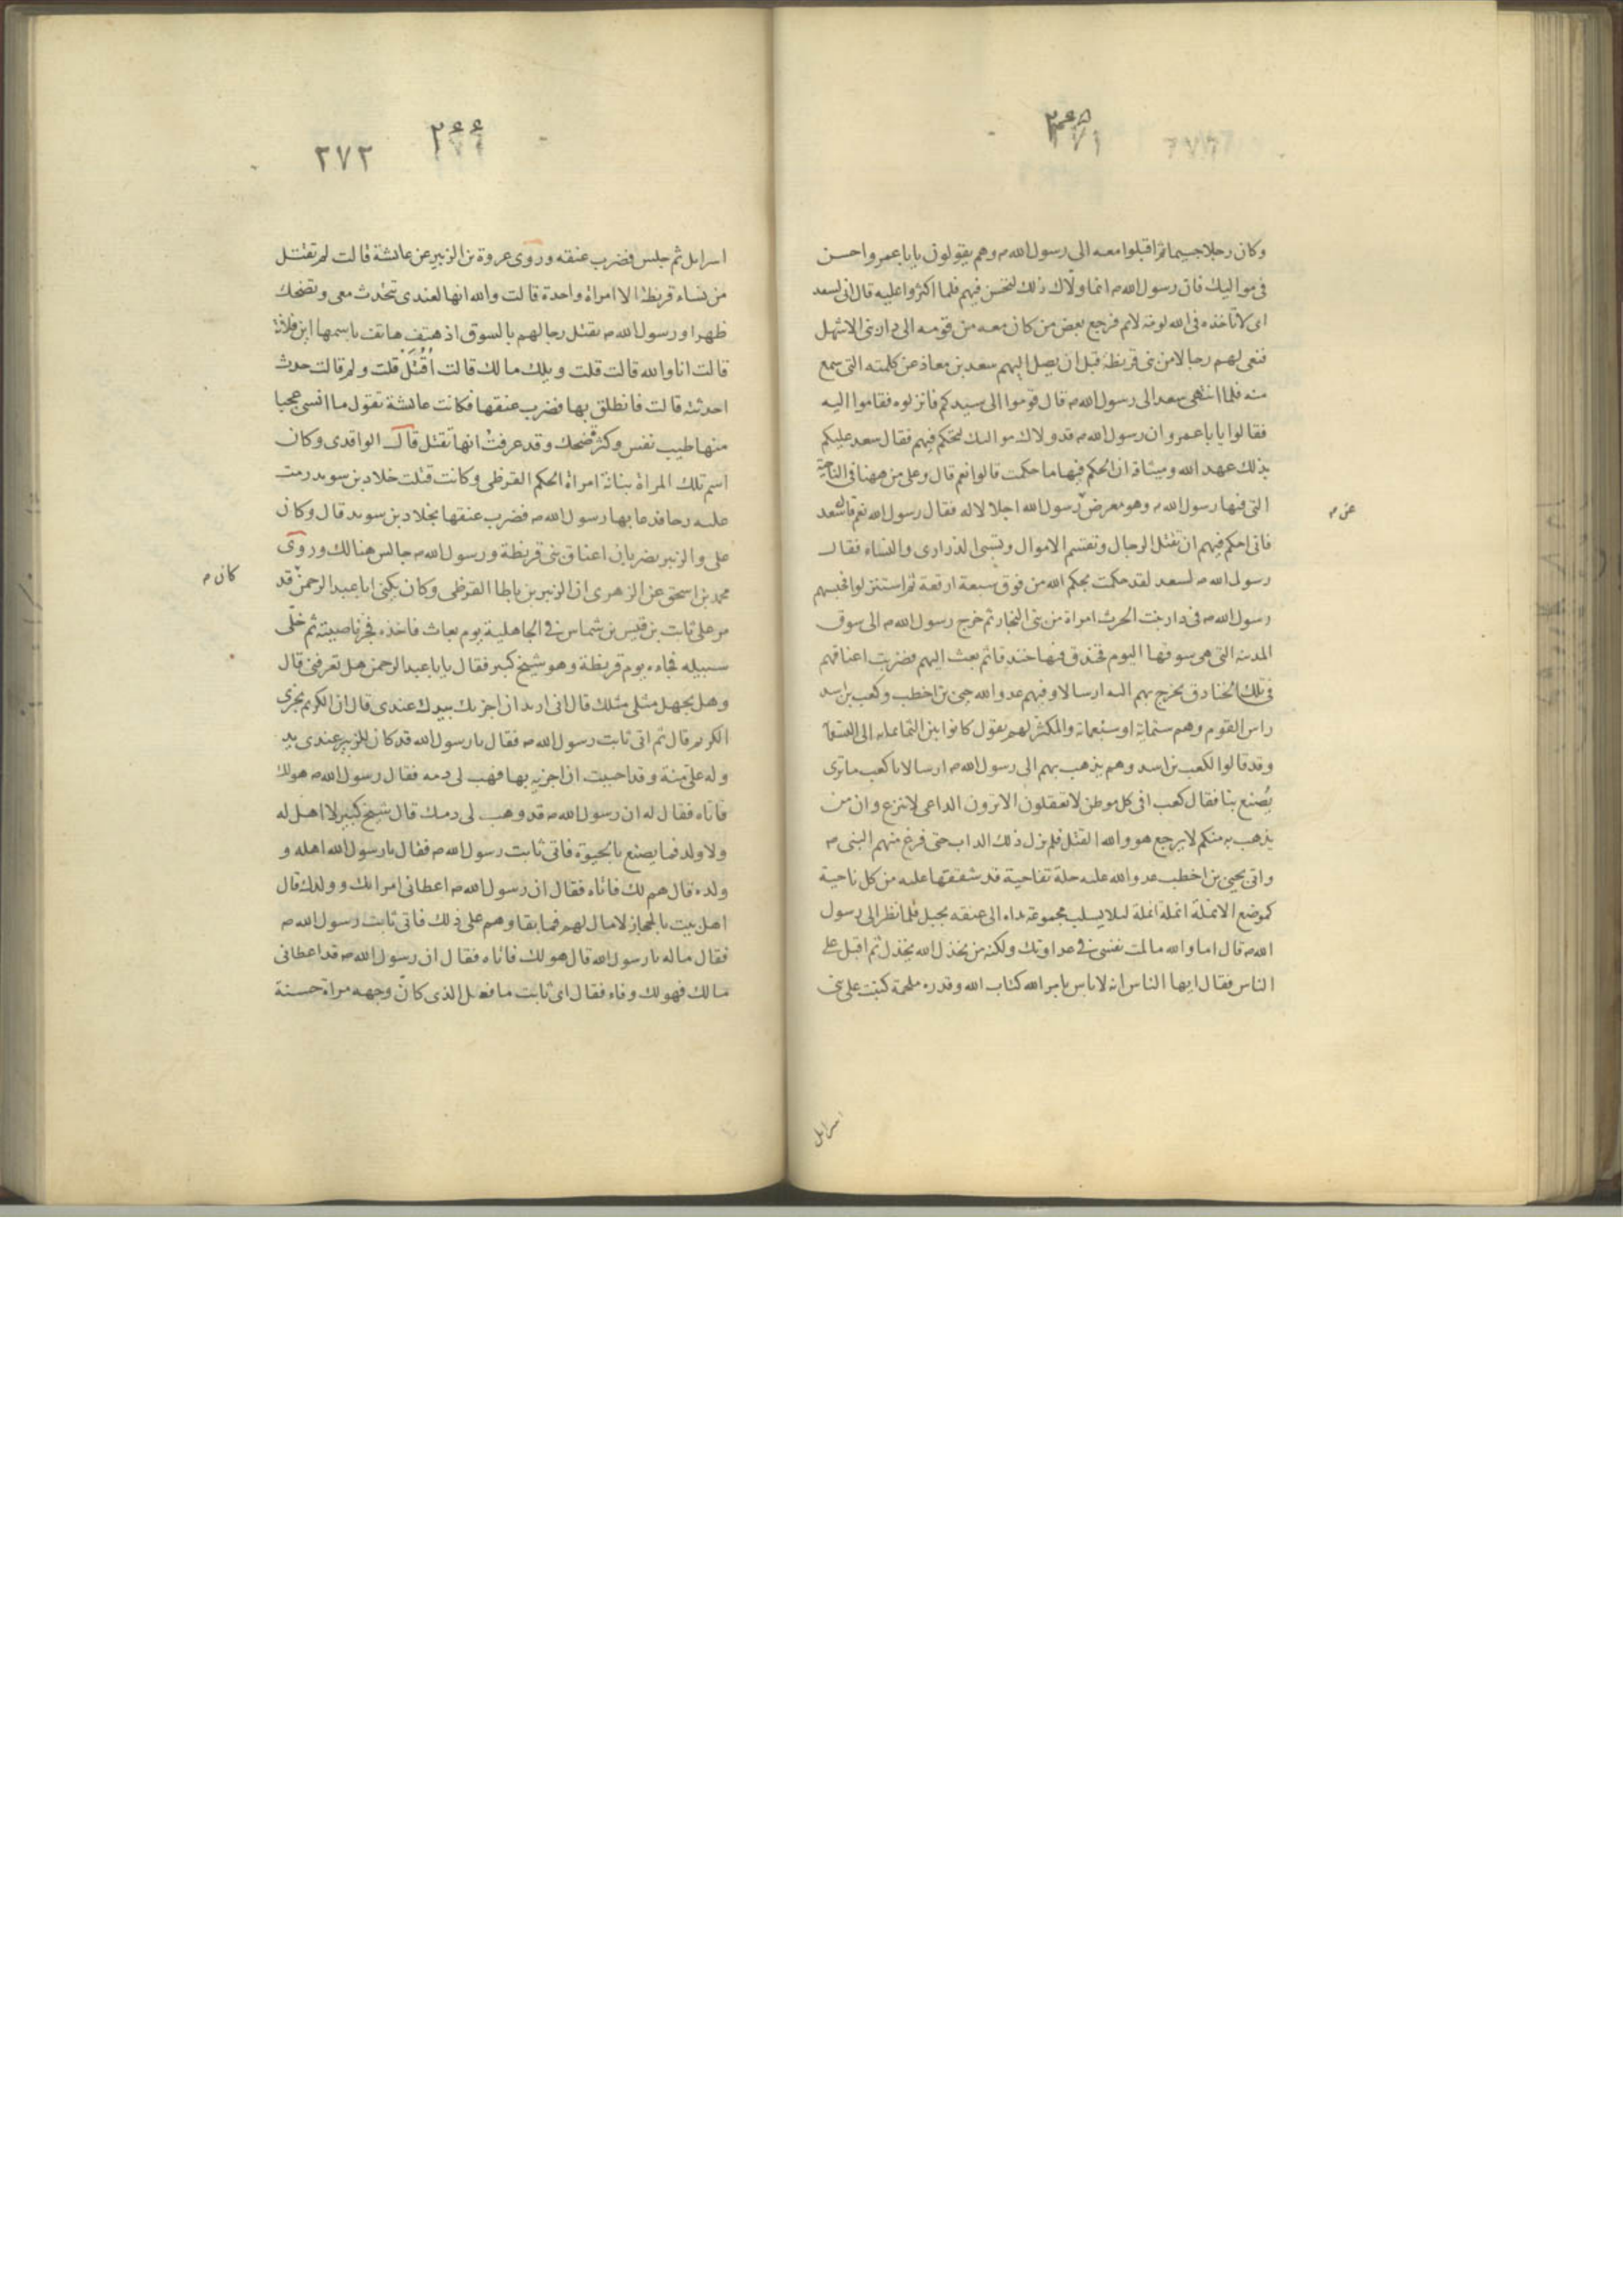 وكان رجلا جسيما ثم اقبلوا معه الى رسول الله ص وهم يقولون يابا عمرو احسن
فى مواليك فان رسول الله ص انما ولاك ذلك لتحسن فيهم فلما اكثروا عليه قال انى لسعد
اى لا تاخذه فى الله لومة لائم فرجع بعض من كان معه من قومه الى دار بنى الاشهل
فنعى لهم رجالا من بنى قريظة قبل ان يصل اليهم سعد بن معاذ عن كلمته التى سمع
منه فلما انتهى سعد الى رسول الله ص قال قوموا الى سيدكم فانزلوه فقاموا اليه
فقالوا يابا عمرو ان رسول الله ص قد ولاك مواليك لتحكم فيهم فقال سعد عليكم
بذلك عهد الله وميثاقه ان الحكم فيها ما حكمت قالوا نعم قال وعلى من ههنا فى الناحية
التى فيها رسول الله ص وهو معرض رسول الله اجلالا له فقال رسول الله نعم قال سعد
عن ص
فانى احكم فيهم ان تقتل الرجال وتقسم الاموال وتسبى الذرارى والنساء فقال
رسول الله ص لسعد لقد حكمت بحكم الله من فوق سبعة ارقعة ثم استنزلوا فحبسهم
رسول الله ص فى دار بنت الحرث امراة من بنى النجار ثم خرج رسول الله ص الى سوق
المدينه التى هى سوقها اليوم فخندق فيها خندقا ثم بعث اليهم فضربت اعناقهم
فى تلك الخنادق يخرج بهم اليه ارسالا وفيهم عدو الله حيى بن اخطب وكعب بن اسد
راس القوم وهم ستمائة او سبعمائة والمكثر لهم يقول كانوا بين الثمانمايه الى التسعمائة
وقد قالوا لكعب بن اسد وهم يذهب بهم الى رسول الله ص ارسالا يا كعب ما ترى
يصنع بنا فقال كعب افى كل موطن لا تعقلون الا ترون الداعى لا ينزع وان من
يذهب به منكم لا يرجع هو والله القتل فلم يزل ذلك الداب حتى فرغ منهم النبى ص
واتى بحيى بن اخطب عدو الله عليه حلة تفاحية قد شققها عليه من كل ناحية
كموضع الانملة انملة انملة لئلا يسلب مجموعة يداه الى عنقه بحبل فلما نظر الى رسول
الله ص قال اما والله ما لمت نفسى فى عداوتك ولكنه من يخذل الله يخذل ثم اقبل على
الناس فقال ايها الناس انه لا باس بامر الله كتاب الله وقدره ملحمة كتبت على بنى
اسرايل
٢٧٢
اسرايل ثم جلس فضرب عنقه وروى عروة بن الزبير عن عايشة قالت لم تقتل
من نساء قريظة الا امراة واحدة قالت والله انها لعندى تتحدث معى وتضحك
ظهرا ورسول الله ص يقتل رجالهم بالسوق اذ هتف هاتف باسمها اين فلانة
قالت انا والله قالت قلت ويلك مالك قالت اُقْتَلُ قلت ولم قالت حدث
احدثته قالت فانطلق بها فضرب عنقها فكانت عايشة تقول ما انسى عجبا
منها طيب نفس وكثرة ضحك وقد عرفت انها تقتل قال الواقدى وكان
اسم تلك المراة بنانة امراة الحكم القرظى وكانت قتلت خلاد بن سويد رمت
عليه رحا فدعا بها رسول الله ص فضرب عنقها بخلاد بن سويد قال وكان
على والزبير يضربان اعناق بنى قريظة ورسول الله ص جالس هنالك وروى
محمد بن اسحق عن الزهرى ان الزبير بن باطا القرظى وكان يكنى ابا عبد الرحمن قد
كان ص
مر على ثابت بن قيس بن شماس فى الجاهلية يوم بعاث فاخذه فجز ناصيته ثم خلى
سبيله فجاءه يوم قريظة وهو شيخ كبير فقال يابا عبد الرحمن هل تعرفنى قال
وهل يجهل مثلى مثلك قال انى اريد ان اجزيك بيدك عندى قال ان الكريم يجزى
الكريم قال ثم اتى ثابت رسول الله ص فقال يا رسول الله قد كان للزبير عندى يد
وله على منة وقد احببت ان اجزيه بها فهب لى دمه فقال رسول الله ص هو لك
فاتاه فقال له ان رسول الله ص قد وهب لى دمك قال شيخ كبير لا اهل له
ولا ولد فما يصنع بالحيوة فاتى ثابت رسول الله ص فقال يا رسول الله اهله و
ولده قال هم لك فاتاه فقال ان رسول الله ص اعطانى امراتك وولدك قال
اهل بيت بالحجاز لا مال لهم فما بقاوهم على ذلك فاتى ثابت رسول الله ص
فقال ماله يا رسول الله قال هو لك فاتاه فقال ان رسول الله ص قد اعطانى
مالك فهو لك وفاء فقال اى ثابت ما فعل الذى كان وجهه مراة حسنة